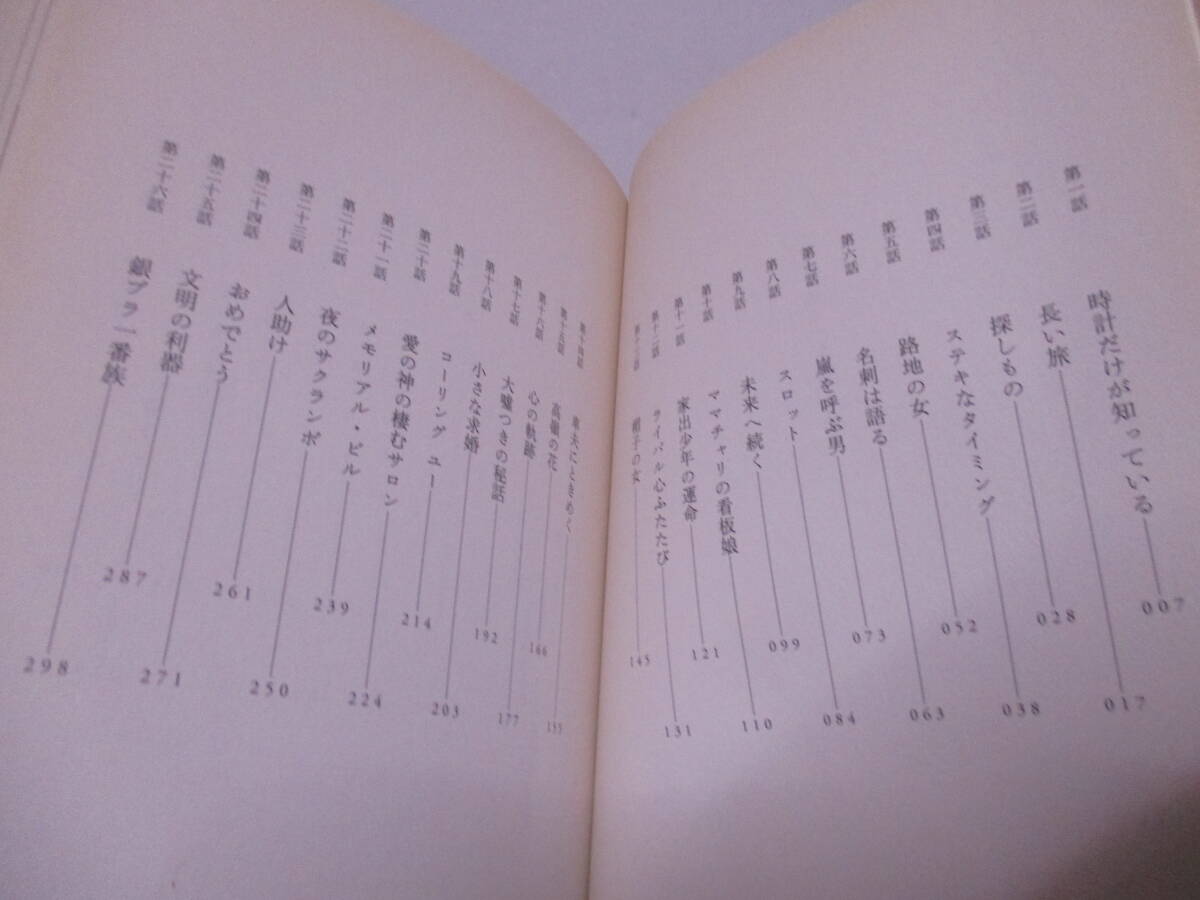 第一話 時計だけが知っている 007
第二話 長い旅 017
第三話 探しもの 028
第四話 ステキなタイミング 038
第五話 路地の女 052
第六話 名刺は語る 063
第七話 嵐を呼ぶ男 073
第八話 スロット 084
第九話 未来へ続く 099
第十話 ママチャリの看板娘 110
第十一話 家出少年の運命 121
第十二話 ライバル心ふたたび 131
第十三話 帽子の女 145
第十四話 車夫にときめく 155
第十五話 高嶺の花 166
第十六話 心の軌跡 177
第十七話 大嘘つきの秘話 192
第十八話 小さな求婚 203
第十九話 コーリング ユー 214
第二十話 愛の神の棲むサロン 224
第二十一話 メモリアル・ビル 239
第二十二話 夜のサクランボ 250
第二十三話 人助け 261
第二十四話 おめでとう 271
第二十五話 文明の利器 287
第二十六話 銀ブラ一番族 298